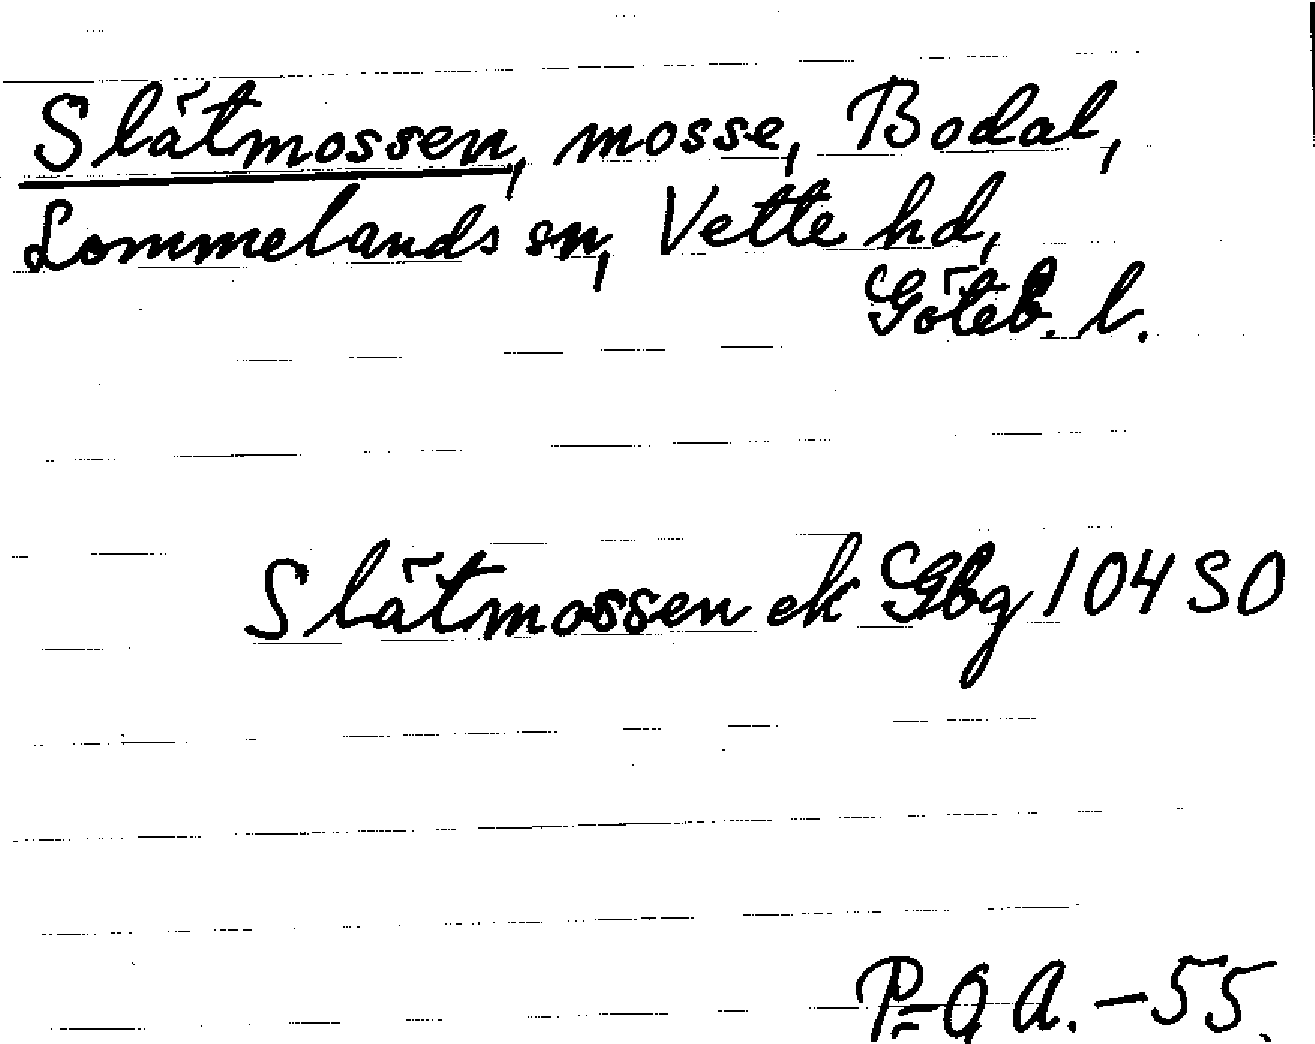 Slätmossen, mosse, Bodal,
Lommelands sn, Vette hd,
Göteb. l.
Slätmossen ek Gbg 104 SO
P-O A. - 55.